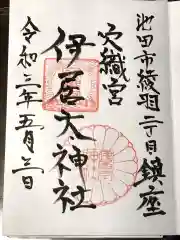 池田市綾羽二丁目鎮座
穴織宮
伊居太神社
令和二年五月三日